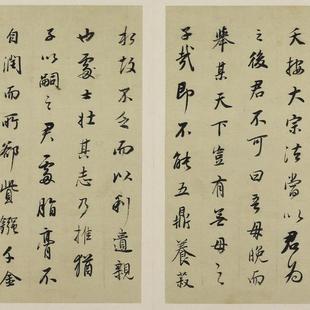 夭按大宗法當以君為
之後君不可曰吾母晚而
舉某天下豈有無母之
子哉即不能五鼎養菽
水故不乏而以利遺親
也處士壯其志乃推猶
子以嗣之君處脂膏不
自潤而所卻貲鏹千金